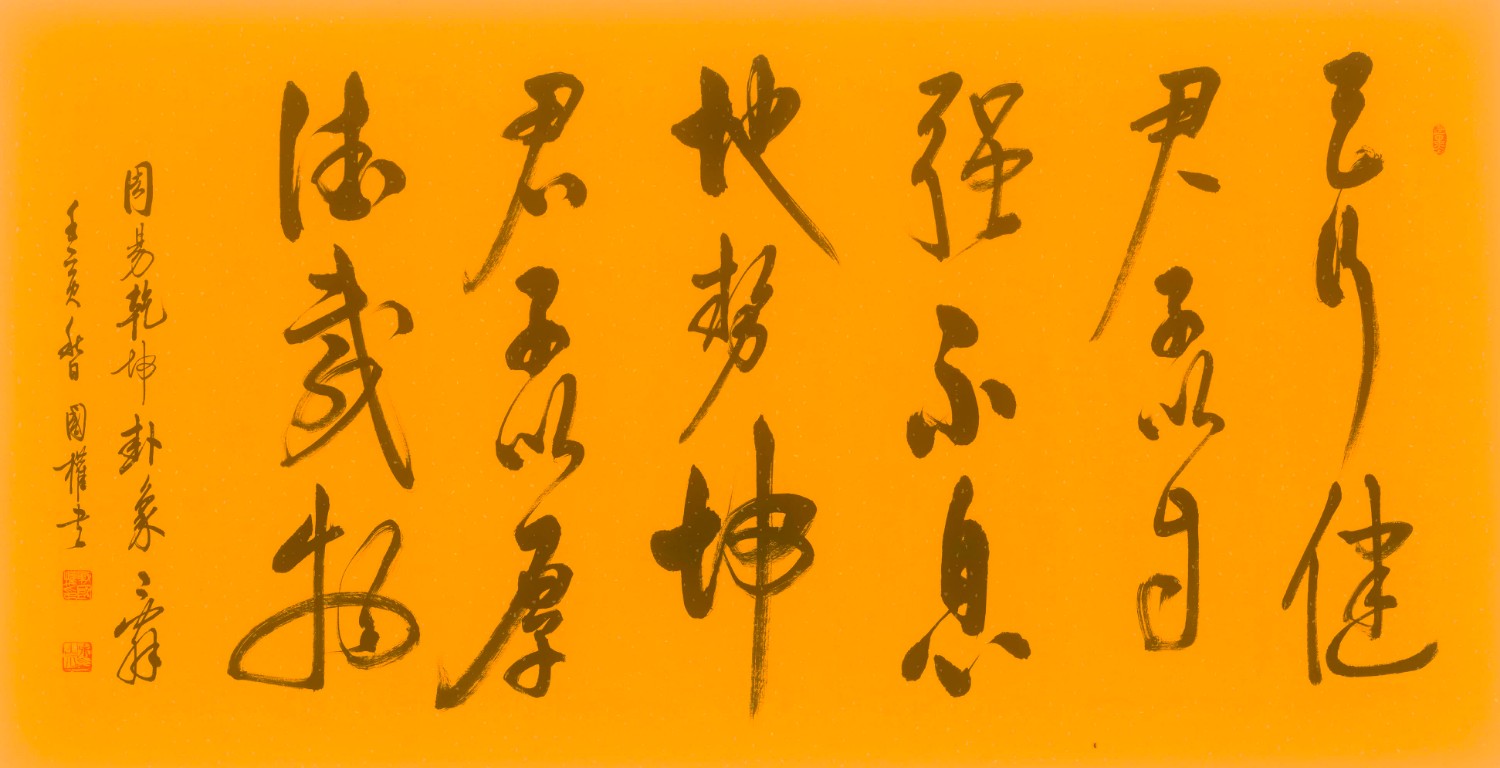 天行健
君子以自
强不息
地勢坤
君子以厚
德載物
周易乾坤卦象之辭
壬寅春國權書